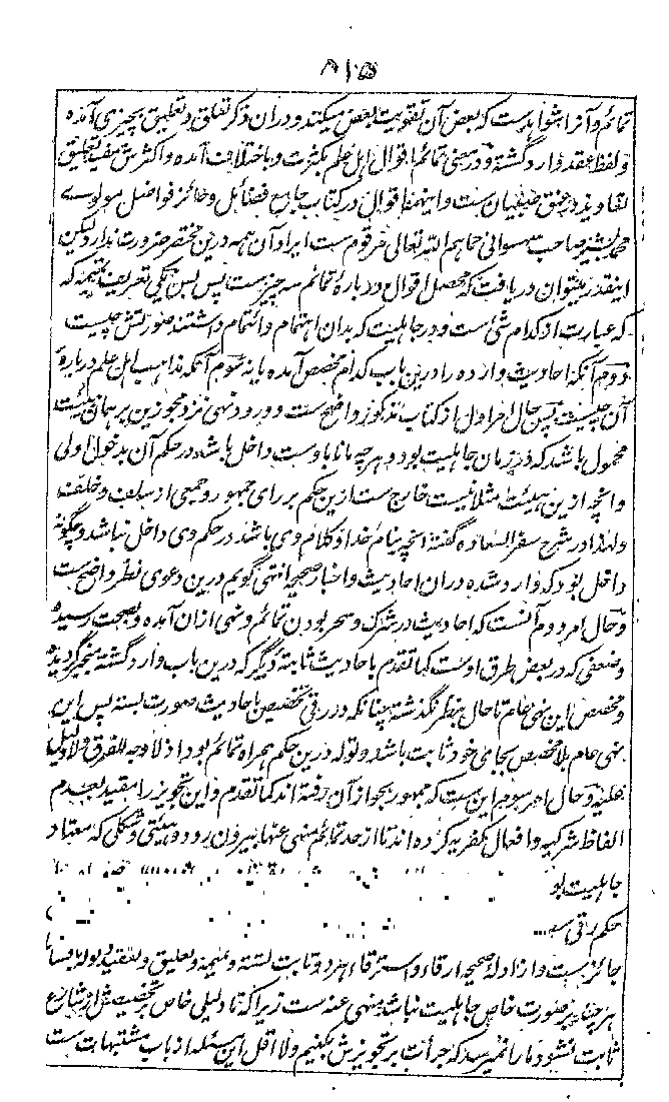 تمائم و آنرا شواهدست که بعض آن تقویت بعض میکند و دران ذکر تعلق و تعلیق بچیزی آمده
و لفظ عقد وارد گشته و در معنی تمائم اقوال اهل علم بکثرت و باختلاف آمده و اکثرش مفید تعلیق
تعاویذ در عنق صبیان ست و اینهمه اقوال در کتاب جامع فضائل و حائز فواضل مولوی
محمد بشیر صاحب سهسوانی حماهم الله تعالی مرقوم ست ایراد آن همه درین مختصر ضرورت ندارد لیکن
اینقدر میتوان دریافت که محصل اقوال درباره تمائم سه چیزست پس یکی تعریف تمیمه که
که عبارت از کدام شئ ست و در جاهلیت که بدان اهتمام و ائتمام داشتند صورتش چیست
دوم آنکه احادیث وارده را درین باب کدام مخصص آمده یا نه سوم آنکه مذاهب اهل علم درباره
آن چیست پس حال امر اول از کتاب مذکور واضح ست و ورود نهی نزد مجوزین بر همان هیئت
محمول باشد که در زمان جاهلیت بود و هرچه مانا باوست داخل باشد در حکم آن بدخول اولی
و انچه ازین هیئت مثلا نیست خارج ست ازین حکم بر رای جمهور و جمعی از سلف و خلف
و لهذا در شرح سفر السعاده گفته انچه بنام خدا و کلام وی باشد در حکم وی داخل نباشد و چگونه
داخل بود که وارد شده دران احادیث و اخبار صحیحه انتهی گویم درین دعوی نظر واضح ست
و حال امر دوم آنست که احادیث در شرک و سحر بودن تمائم و نهی ازان آمده و بصحت رسیده
و ضعفی که در بعض طرق اوست کما تقدم باحادیث ثابته دیگر که درین باب وارد گشته منجبر گردیده
و مخصص این نهی عام تا حال بنظر نگذشته چنانکه در رقی تخصیص باحادیث صورت بسته پس این
نهی عام بلا مخصص بجای خود ثابت باشد و توله درین حکم همراه تمائم بود اذ لا وجه للفرق و لا دلیل
علیه و حال امر سوم این ست که جمهور بجواز آن رفته اند کما تقدم و این تجویز را مقید بعدم
الفاظ شرکیه و افعال کفریه کرده اند تا از حد تمائم منهی عنها بیرون رود و هیئتی و شکلی که معتاد
جاهلیت بو
حکم رقی
جائزست و از ادله صحیحه ارقاء و استرقاء هر دو ثابت گشته و تمیمه و تعلیق و تقلید
هر چند بر صورت خاص جاهلیت نباشد منهی عنه ست زیرا که تا دلیلی خاص بر تخصیصش از شارع
ثابت نشود ما را نمیرسد که جرأت بر تجویزش بکنیم و لا اقل این مسئله از باب مشتبهات ست